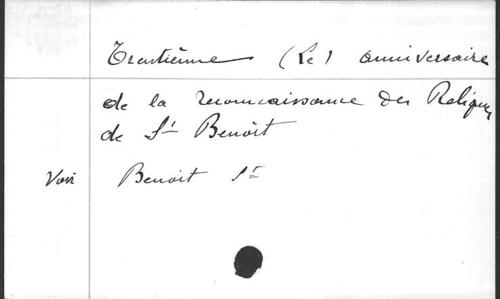 Trentième (Le) anniversaire
de la reconnaissance des Reliques
de St Benoît
Voir Benoit St